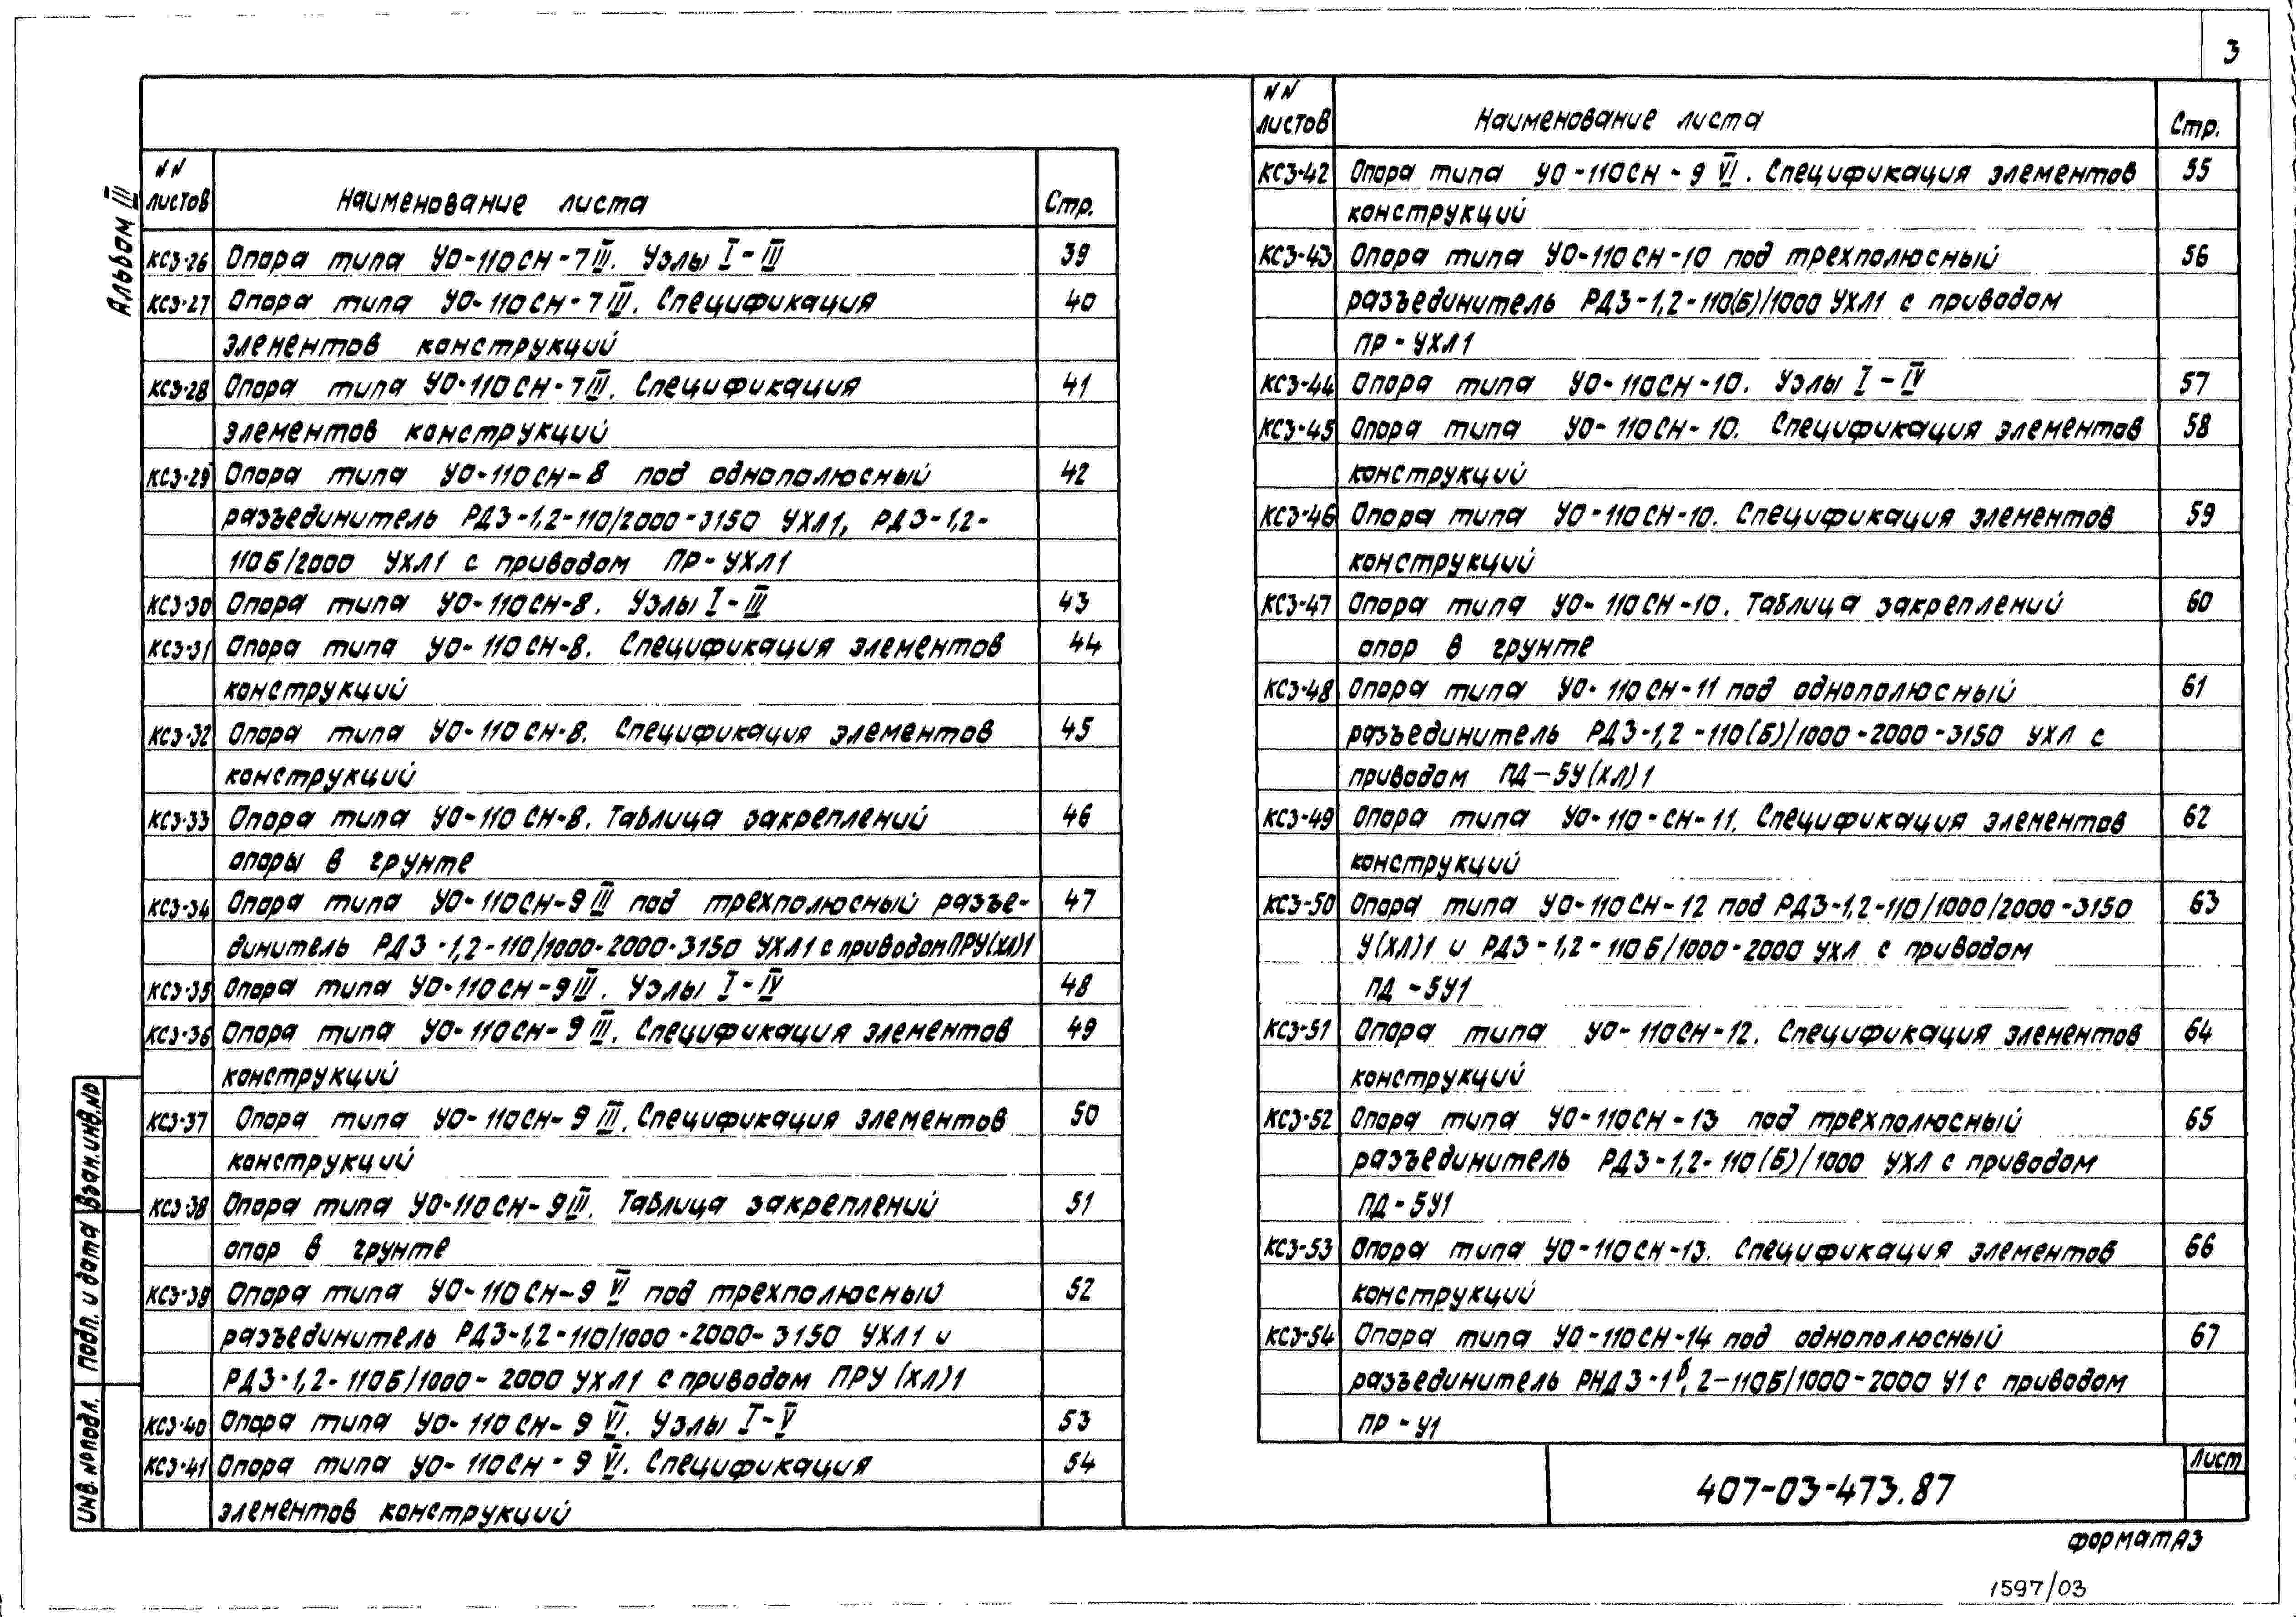 3
Альбом III
NN
листов Наименование листа Стр.
КС3-26 Опора типа УО-110СН-7III. Узлы I-III 39
КС3-27 Опора типа УО-110СН-7III. Спецификация 40
элементов конструкций
КС3-28 Опора типа УО-110СН-7III. Спецификация 41
элементов конструкций
КС3-29 Опора типа УО-110СН-8 под однополюсный 42
разъединитель РДЗ-1,2-110/2000-3150 УХЛ1, РДЗ-1,2-
110Б/2000 УХЛ1 с приводом ПР-УХЛ1
КС3-30 Опора типа УО-110СН-8. Узлы I-III 43
КС3-31 Опора типа УО-110СН-8. Спецификация элементов 44
конструкций
КС3-32 Опора типа УО-110СН-8. Спецификация элементов 45
конструкций
КС3-33 Опора типа УО-110СН-8. Таблица закреплений 46
опоры в грунте
КС3-34 Опора типа УО-110СН-9III под трехполюсный разъе- 47
динитель РДЗ-1,2-110/1000-2000-3150 УХЛ1 с приводом ПРУ(ХЛ)1
КС3-35 Опора типа УО-110СН-9III. Узлы I-IV 48
КС3-36 Опора типа УО-110СН-9III. Спецификация элементов 49
конструкций
КС3-37 Опора типа УО-110СН-9III. Спецификация элементов 50
конструкций
КС3-38 Опора типа УО-110СН-9III. Таблица закреплений 51
опор в грунте
КС3-39 Опора типа УО-110СН-9VI под трехполюсный 52
разъединитель РДЗ-1,2-110/1000-2000-3150 УХЛ1 и
РДЗ-1,2-110Б/1000-2000 УХЛ1 с приводом ПРУ(ХЛ)1
КС3-40 Опора типа УО-110СН-9VI. Узлы I-V 53
КС3-41 Опора типа УО-110СН-9VI. Спецификация 54
элементов конструкций
NN
листов Наименование листа Стр.
КС3-42 Опора типа УО-110СН-9VI. Спецификация элементов 55
конструкций
КС3-43 Опора типа УО-110СН-10 под трехполюсный 56
разъединитель РДЗ-1,2-110(Б)/1000 УХЛ1 с приводом
ПР-УХЛ1
КС3-44 Опора типа УО-110СН-10. Узлы I-IV 57
КС3-45 Опора типа УО-110СН-10. Спецификация элементов 58
конструкций
КС3-46 Опора типа УО-110СН-10. Спецификация элементов 59
конструкций
КС3-47 Опора типа УО-110СН-10. Таблица закреплений 60
опор в грунте
КС3-48 Опора типа УО-110СН-11 под однополюсный 61
разъединитель РДЗ-1,2-110(Б)/1000-2000-3150 УХЛ с
приводом ПД-5У(ХЛ)1
КС3-49 Опора типа УО-110-СН-11. Спецификация элементов 62
конструкций
КС3-50 Опора типа УО-110СН-12 под РДЗ-1,2-110/1000/2000-3150 63
У(ХЛ)1 и РДЗ-1,2-110Б/1000-2000 УХЛ с приводом
ПД-5У1
КС3-51 Опора типа УО-110СН-12. Спецификация элементов 64
конструкций
КС3-52 Опора типа УО-110СН-13 под трехполюсный 65
разъединитель РДЗ-1,2-110(Б)/1000 УХЛ с приводом
ПД-5У1
КС3-53 Опора типа УО-110СН-13. Спецификация элементов 66
конструкций
КС3-54 Опора типа УО-110СН-14 под однополюсный 67
разъединитель РНДЗ-1б,2-110Б/1000-2000 У1 с приводом
ПР-У1
407-03-473.87
Лист
Формат А3
1597/03
Инв. № подл.
Подп. и дата
Взам. инв. №